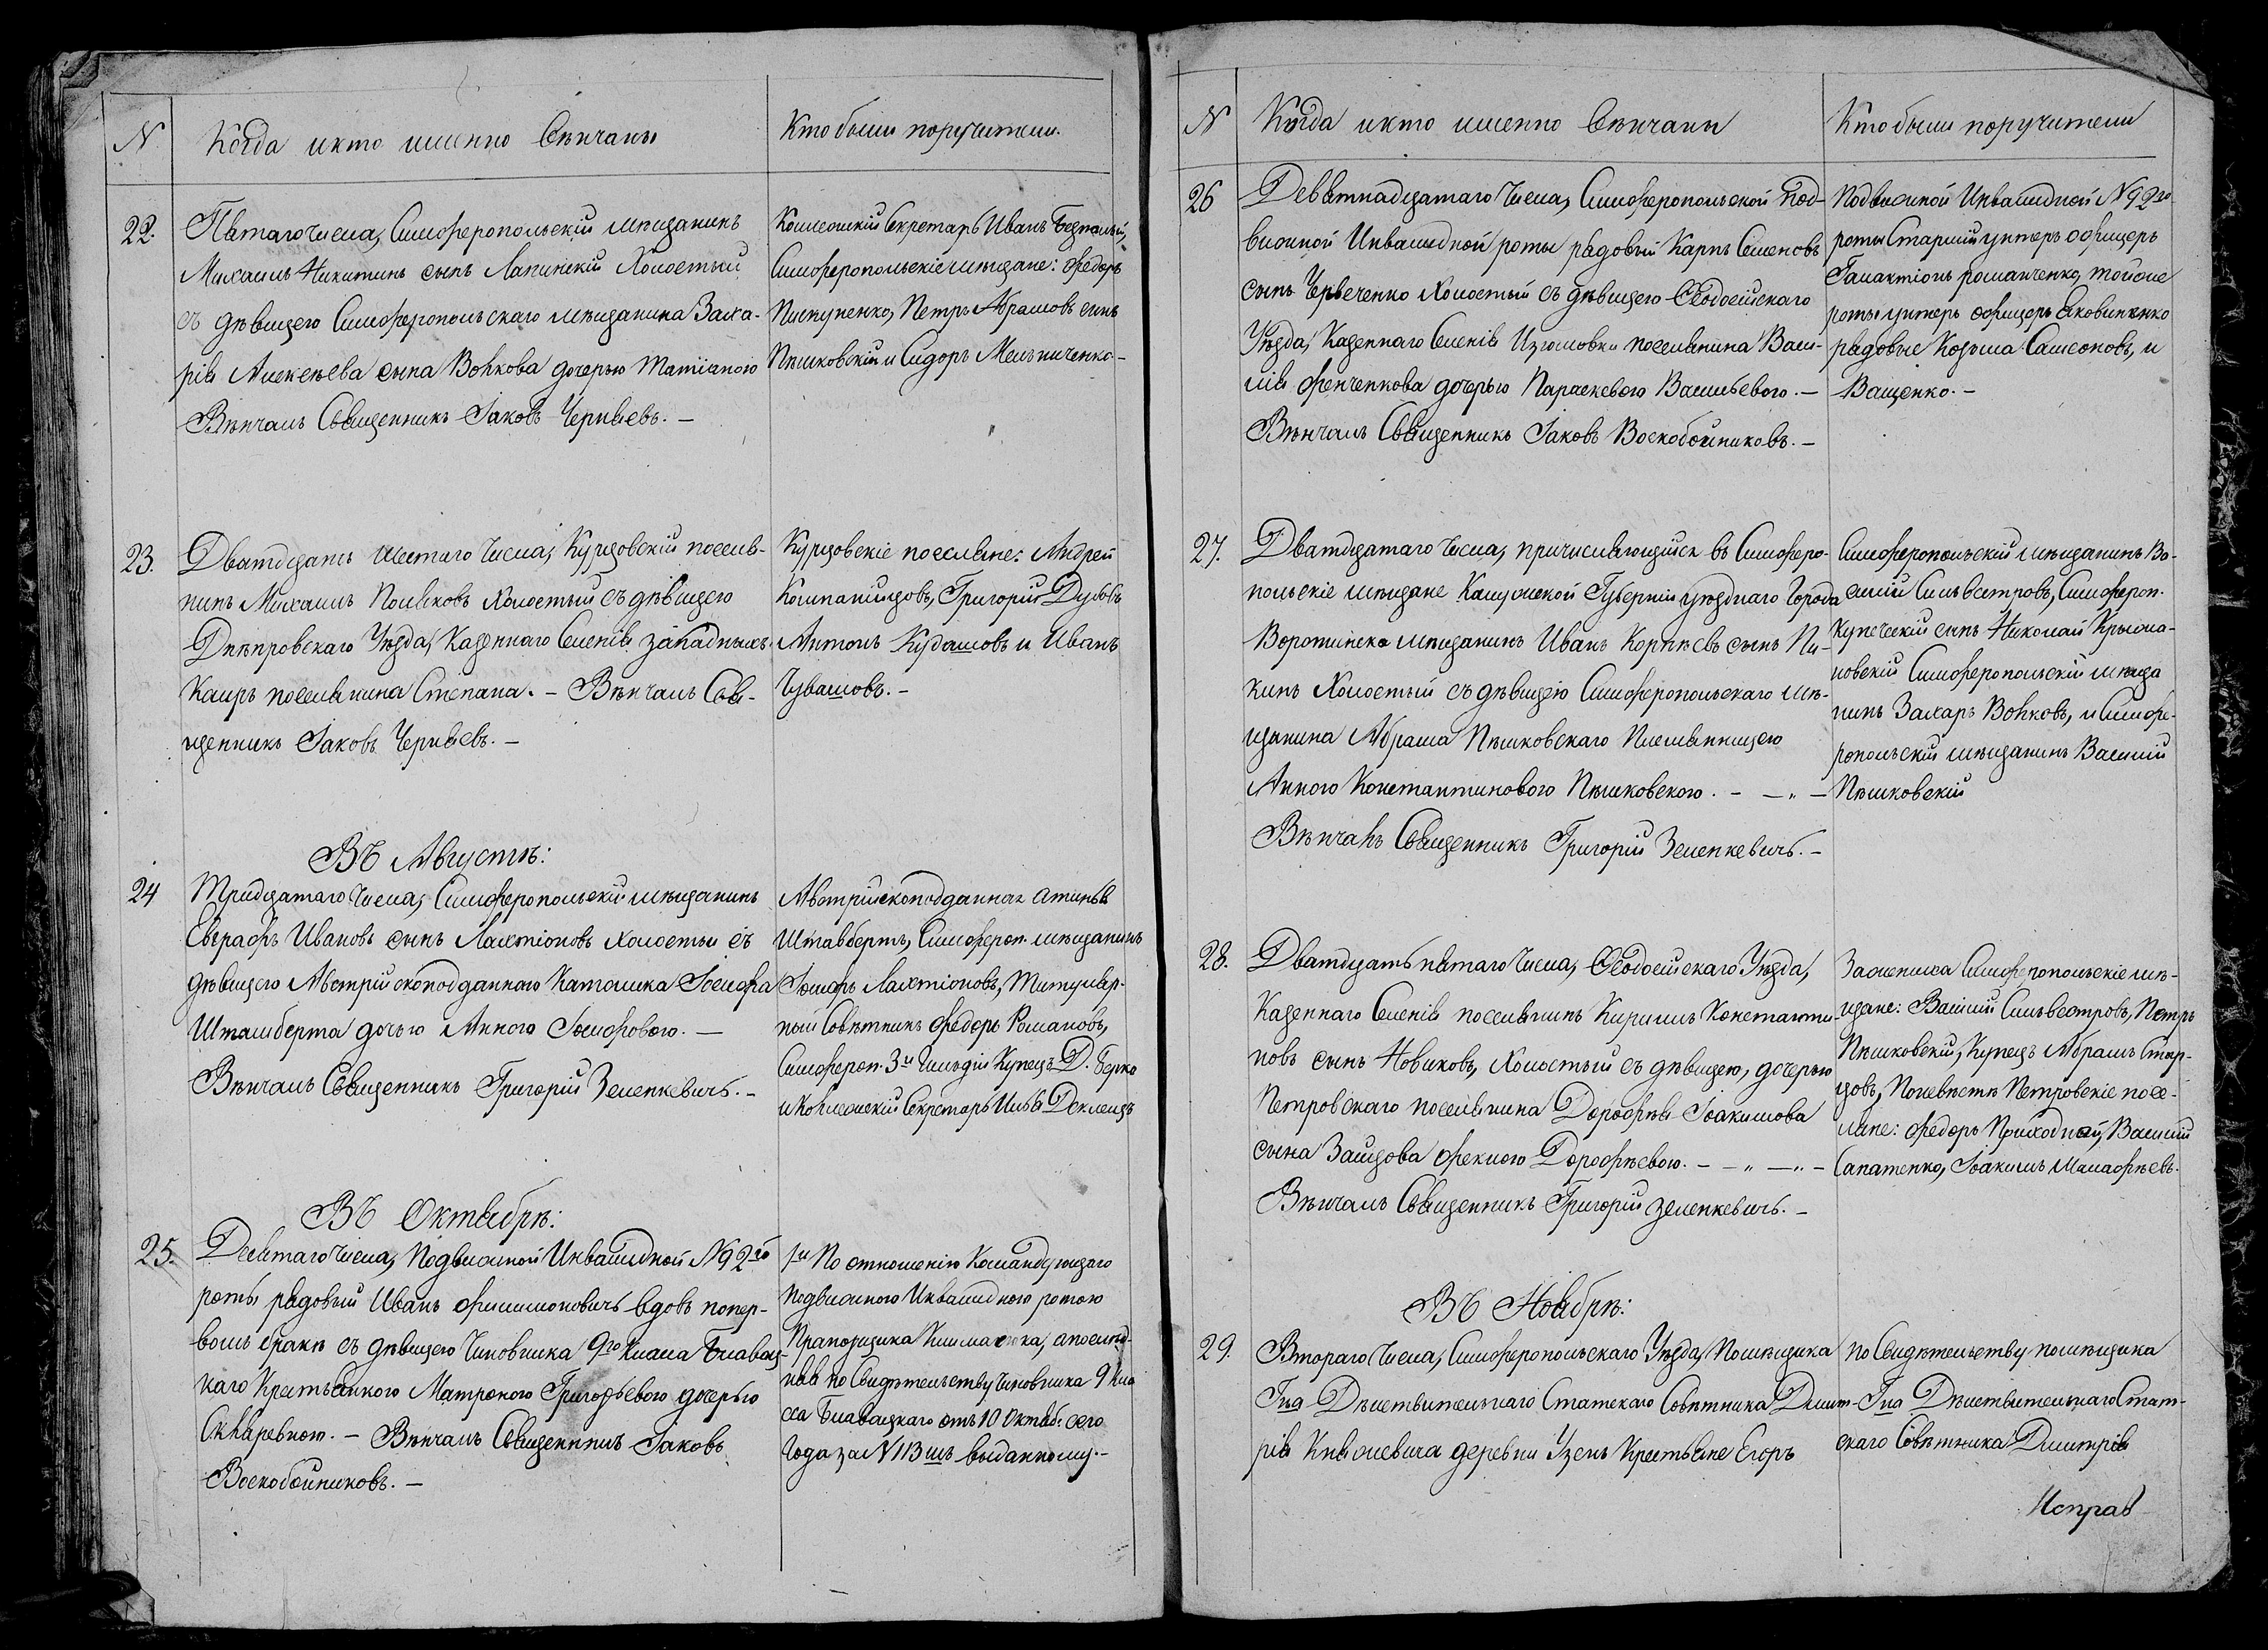 N
Когда и кто именно Вѣнчаны
Кто были поручители.
22.
Пятаго числа, Симферопольскій мѣщанинъ
Михаилъ Никитинъ сынъ Лапинскій Холостый
съ дѣвицею Симферопольскаго мѣщанина Заха-
рія Алексѣева сына Волкова дочерью Татіаною
Вѣнчалъ Священникъ Іаковъ Чернявъ. –
Коллежскій Секретарь Иванъ
Симферопольскіе мѣщане: Федоръ
Петръ Абрамовъ сынъ
Пѣшковскій и Сидоръ Мельниченко –
23.
Дватцать шестаго Числа, Курцовскій поселя-
нинъ Михаилъ Поляковъ холостый съ дѣвицею
Днѣпровскаго Уѣзда, Казеннаго Селенія западныхъ
Каиръ поселянина Степана. – Вѣнчалъ Свя-
щенникъ Іаковъ Чернявъ. –
Курцовскіе поселяне: Андрей
Компанийцовъ, Григорий
Антонъ Кудашовъ и Иванъ
Чувашовъ. –
Въ Августѣ:
24
Тридцатаго Числа, Симферопольскій мѣщанинъ
Евграфъ Ивановъ сынъ Лактіоновъ холостый съ
дѣвицею Австрійскоподданнаго Католика Іосифа
Шталберта дочью Анною Іосифовою. –
Вѣнчалъ Священникъ Григорій Зеленкевичъ. –
Австрійскоподданная
Симфероп. мѣщанинъ
Лактіоновъ, Титуляр-
ный Совѣтникъ Федоръ Романовъ,
Симфероп. 3й Гильдіи Купецъ Д.
и Коллежскій Секретарь Илья
Въ Октябрѣ:
25.
Девятаго числа, Подвижной Инвалидной N92го
роты рядовый Иванъ Филимоновичъ вдовъ попер-
вомъ бракѣ съ дѣвицею Чиновника 9го Класа
каго Крестьянкою Матроною Григорьевою дочерью
Вѣнчалъ Священникъ Іаковъ
Воскобойниковъ. –
По отношенію Командующаго
подвижною Инвалидною ротою
Прапорщика а послѣд-
няя по Свидѣтельству Чиновника 9 Кла
са отъ 10 Октяб. сего
Года за N113мъ выданному. –
N
Когда и кто именно Вѣнчаны
Кто были поручители
26
Девятнадцатаго Числа, Симферопольской под-
вижной Инвалидной роты рядовый Карпъ Семеновъ
сынъ Червеченко Холостый съ дѣвицею Ѳеодосійскаго
Уѣзда, Казеннаго Селенія Изюмовки поселянина Васи-
лія Фенченкова дочерью Параскевою Васильевою. –
Вѣнчалъ Священникъ Іаковъ Воскобойниковъ. –
Подвижной Инвалидной N92го
роты Старшій унтеръ офицеръ
Галактіонъ романченко, тойже
роты унтеръ офицеръ Яковиненко
рядовые Козьма Самсоновъ, и
Ващенко. –
27.
Дватцатаго Числа, причисляющійся въ Симферо-
польскіе мѣщане Калужской Губерніи уѣзднаго Города
Воротинска мѣщанинъ Иванъ Корнѣевъ сынъ Ни-
кинъ Холостый съ дѣвицею Симферопольскаго мѣ-
щанина Абрама Пѣшковскаго Племянницею
Анною Константиновою Пѣшковскою. – – „ –
Вѣнчалъ Священникъ Григорій Зеленкевичъ. –
Симферопольскій мѣщанинъ Ва-
силій Сильвестровъ, Симфероп.
Купеческій сынъ Николай Крыжа-
новскій Симферопольскій мѣща
нинъ Захаръ Волковъ, и Симфе-
ропольскій мѣщанинъ Василій
Пѣшковскій
28.
Дватцать пятаго Числа, Ѳеодосійскаго Уѣзда,
Казеннаго Селенія поселянинъ Кирилъ Константи-
новъ сынъ Новиковъ, Холостый съ дѣвицею, дочерью
Петровскаго поселянина Дорофѣя Іоакимова
сына Зайцова Феклою Дорофѣевою. – – „ – „ –
Вѣнчалъ Священникъ Григорій Зеленкевичъ. –
Заженика Симферопольскіе мѣ-
щане: Василій Сильвестровъ, Петръ
Пѣшковскій, Купецъ Абрамъ Стар-
цовъ, Поневѣстѣ Петровскіе посе-
ляне: Федоръ Приходной, Василій
Сапатенко, Іоакимъ Малафѣевъ.
Въ Ноябрѣ:
29.
Втораго Числа, Симферопольскаго Уѣзда, Помѣщика
Гна Дѣйствительнаго Статскаго Совѣтника Дмит-
рія Княжевича деревни Узень Крестьяне Егоръ
по Свидѣтельству помѣщика
Гна Дѣйствительнаго Стат-
скаго Совѣтника Дмитрія
Исправ